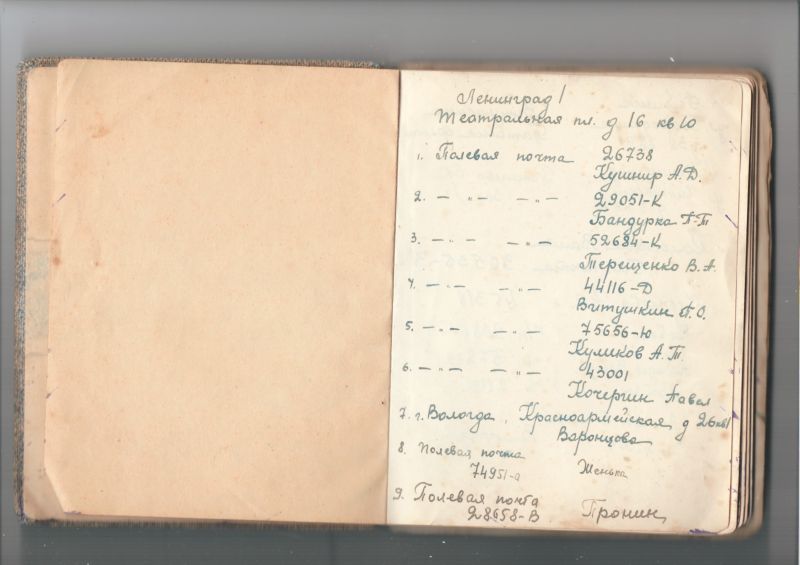 Ленинград 1
Театральная пл. д 16 кв 10
1. Полевая почта 26738
Кушнир А.Д.
2. — „ — — „ — 29051-К
Бандурка П.Т
3. — „ — — „ — 52684-К
Терещенко В.А.
4. — „ — — „ — 44116-Д
Витушкин П.О.
5. — „ — — „ — 75656-Ю
Куликов А.Т.
6. — „ — — „ — 43001
Кочергин Павел
7. г. Вологда, Красноармейская д 26 кв 1
Варонцова
8. Полевая почта Женька
74951-а
9. Полевая почта Пронин,
28658-В